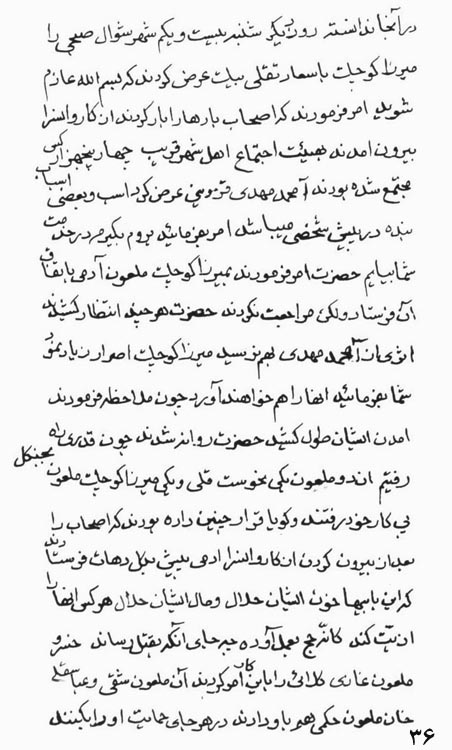 در آنجا نداشته روز دیگر شنبه بیست و یکم شهر شوال صبحی را
میرزا کوچک با سعادتقلی بیک عرض کردند که بسم الله عازم
شوید امر فرمودند که اصحاب بارها را بار کردند از کاروانسرا
بیرون آمدند بهیئت اجتماع اهل شهر قریب چهار پنجهزار کس
مجتمع شده بودند آ محمد مهدی عرض کرد اسب و بعضی اسباب
بنده در پیش شخصی میباشد امر بفرمائید بروم بگیرم در خدمت
شما بیایم حضرت امر فرمودند بمیرزا کوچک ملعون آدمی باتفاق
آن فرستاد ولکن مراجعت نکردند حضرت هر چند انتظار کشیدند
اثری از آ محمد مهدی بهم نرسید میرزا کوچک اصرار زیاد نمود
شما بفرمائید آنها را هم خواهند آورد چون ملاحظه فرمودند
آمدن ایشان طول کشید حضرت روانه شدند چون قدری راه
رفتیم آن دو ملعون یکی قلی و یکی میرزا کوچک ملعون بجنگل
پی کار خود رفتند و گویا قرار چنین داده بودند که اصحاب را
بعد از بیرون کردن از کاروانسرا آدمی پیش بیکل دهات فرستادند
که این بابیها خون ایشان حلال و مال ایشان حلال هر کس آنها را
اذیت کند کانه حج بعمل آورده چه جای آنکه بقتل رساند خسرو
ملعون قادی کلائی را باین کار امر کردند آن ملعون شقی و عباسقلی
خان ملعون حکمی هم باو دادند در هر جای حمایت او را بکنند
۳۶